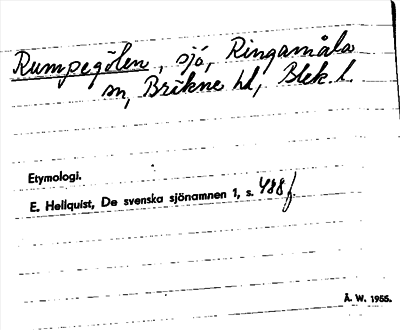 Rumpegölen, sjö, Ringamåla
sn, Bräkne hd, Blek. l.
Etymologi.
E. Hellquist, De svenska sjönamnen 1, s. 488 f.
Å. W. 1955.